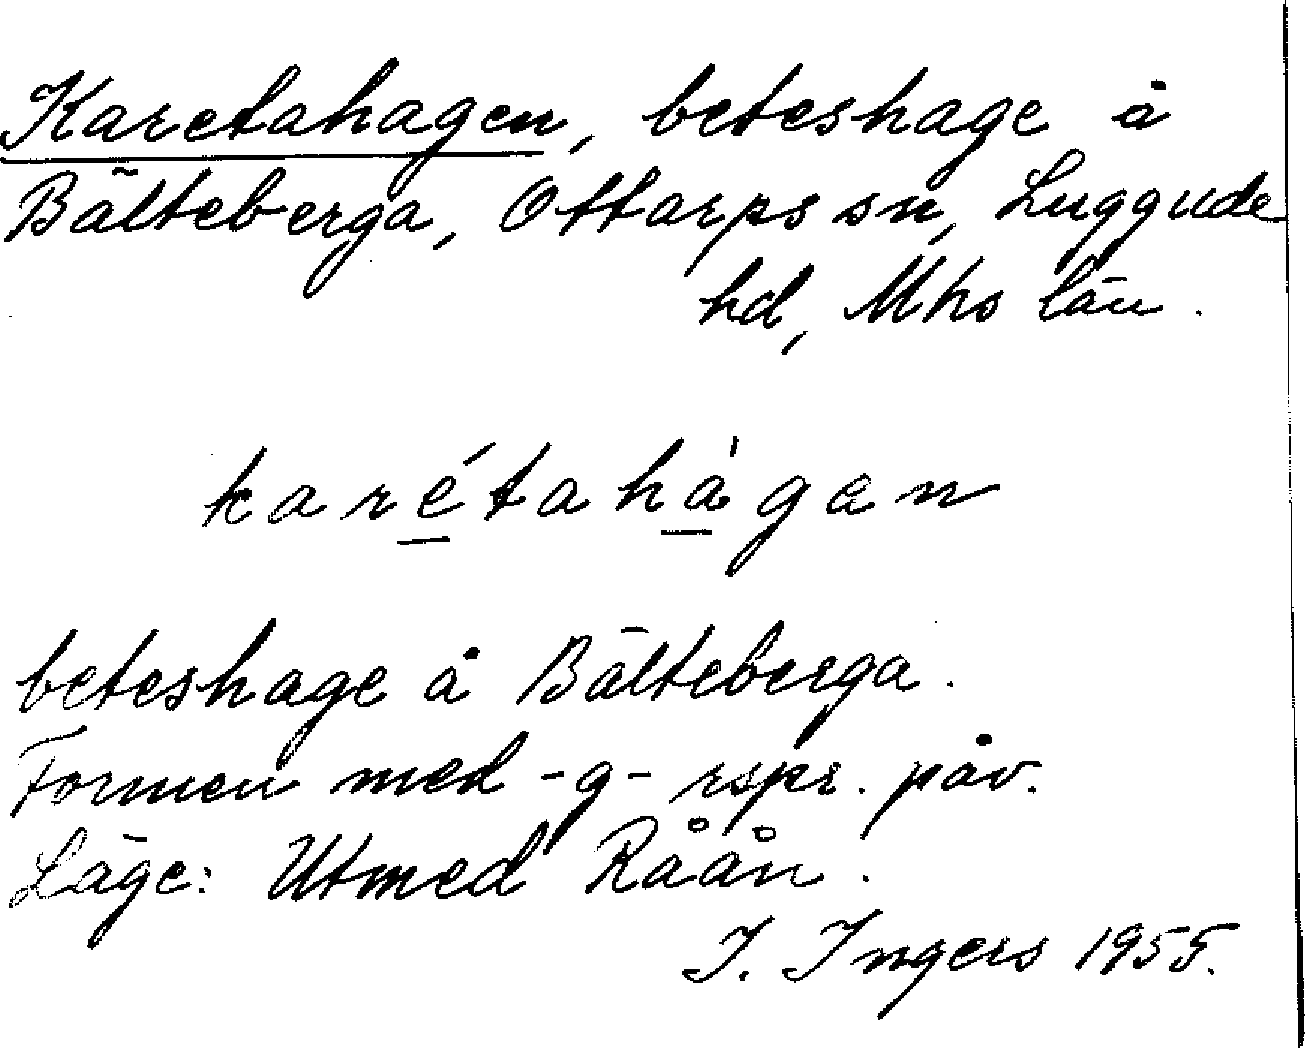 Karetahagen, beteshage å
Bälteberga, Ottarps sn, Luggude
hd, Mhs län.
karétahàgan
beteshage å Bälteberga.
Formen med -g- rspr. påv.
Läge: Utmed Råån.
I. Ingers 1955.